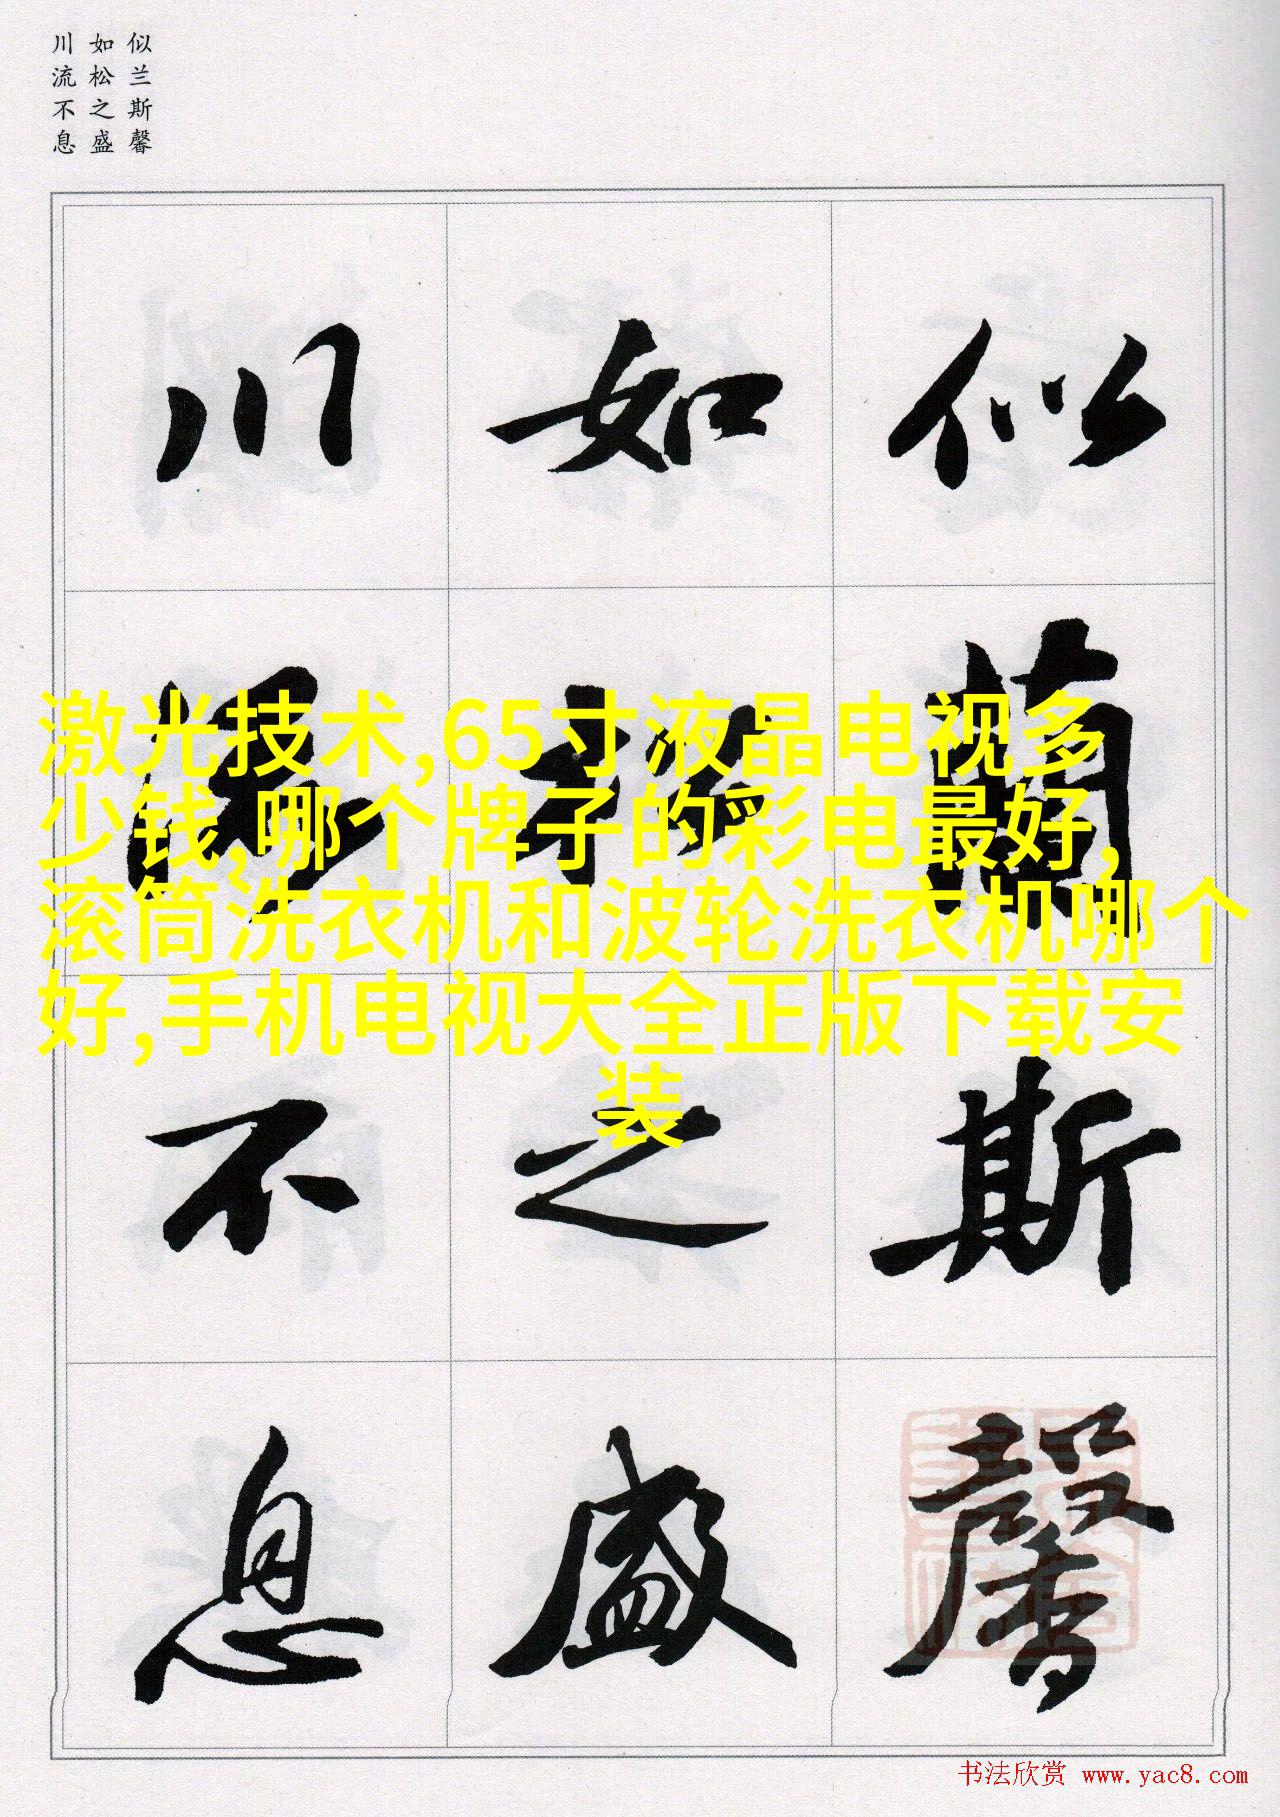 似兰斯馨
如松之盛
川流不息
似蘭斯馨
如松之盛
川流不息
激光技术,65寸液晶电视多
少钱,哪个牌子的彩电最好,
滚筒洗衣机和波轮洗衣机哪个
好,手机电视大全正版下载安
装
书法欣赏 www.yac8.com